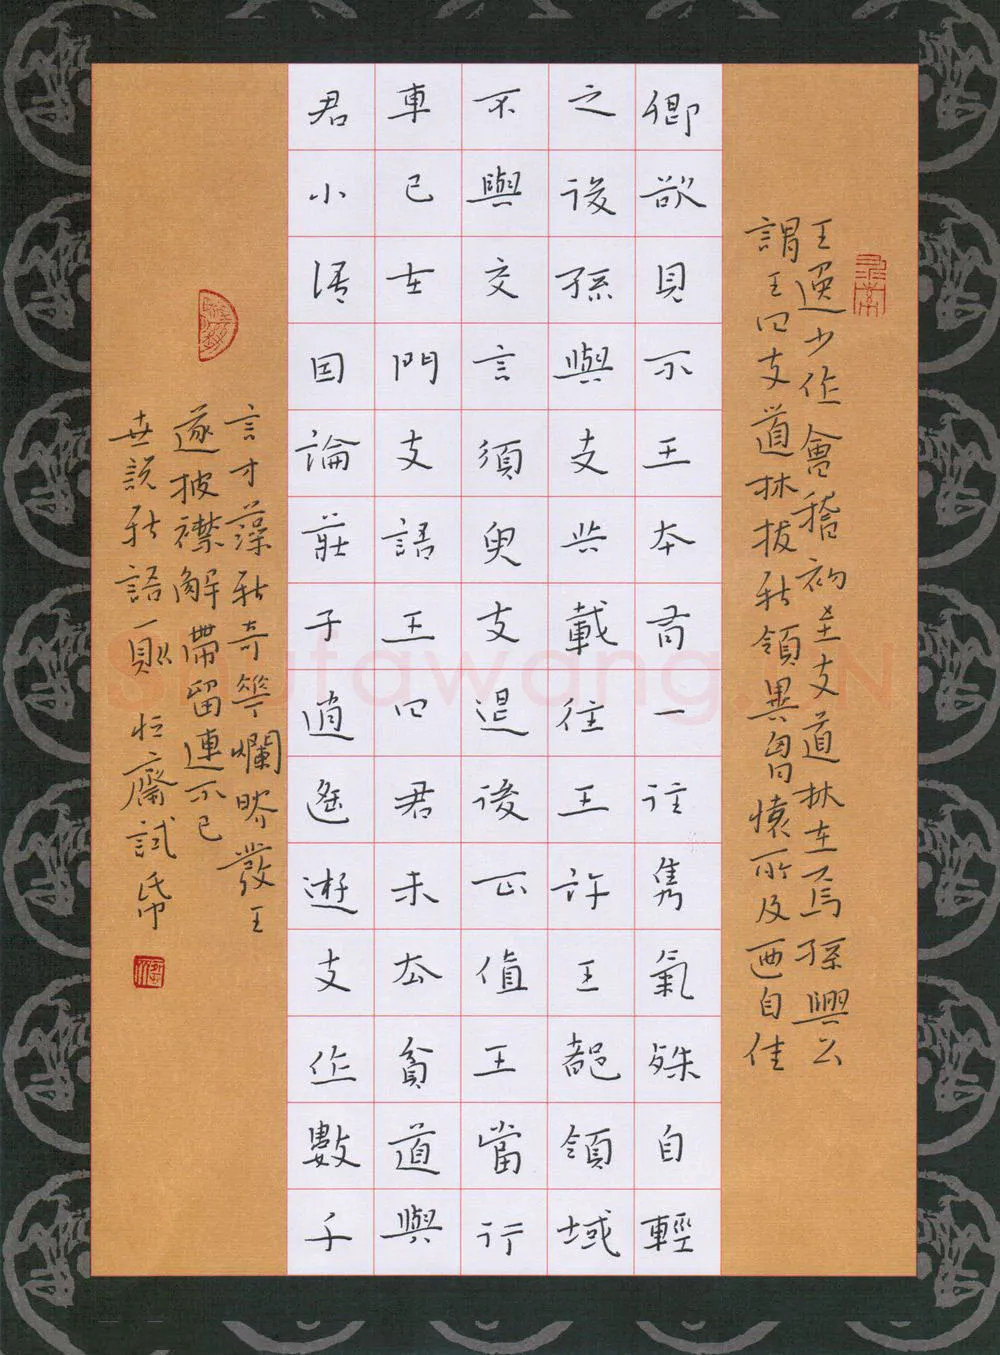 王逸少作會稽初至支道林在焉孫興公
謂王曰支道林拔新領異胷懷所及迺自佳
卿欲見不王本有一往雋氣殊自輕
之後孫與支共載往王許王都領域
不與交言須臾支退後正值王當行
車已在門支語王曰君未去貧道與
君小語因論莊子逍遙遊支作數千
言才藻新奇花爛映發王
遂披襟解帶留連不已
世說新語一則 恒齋試筆
Shufawang.CN